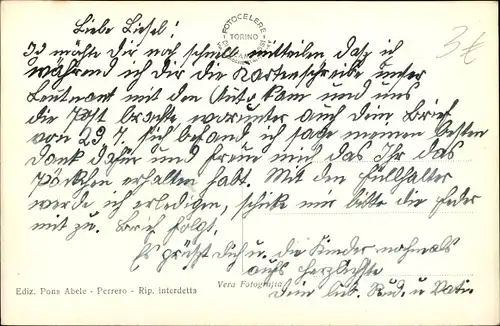 Liebe Liesel!
FOTOCELERE
TORINO
3€
Ich möchte Dir noch schnell mitteilen dass ich
während ich dir die Karte schreibe unser
Leutnant mit den Auto kam und uns
die Post brachte worunter auch dein Brief
von 29.7. sich befand ich sage meinen besten
Dank dafür und freue mich das Ihr das
Päckchen erhalten habt. Mit den Füllhalter
werde ich erledigen, schicke mir bitte die Feder
mit zu. Brief folgt.
Es grüßt Dich u. die Kinder nochmals
aufs herzlichste
Dein lieb. Rud. u. Vati
Ediz. Pons Abele - Perrero - Rip. interdetta
Vera Fotografia